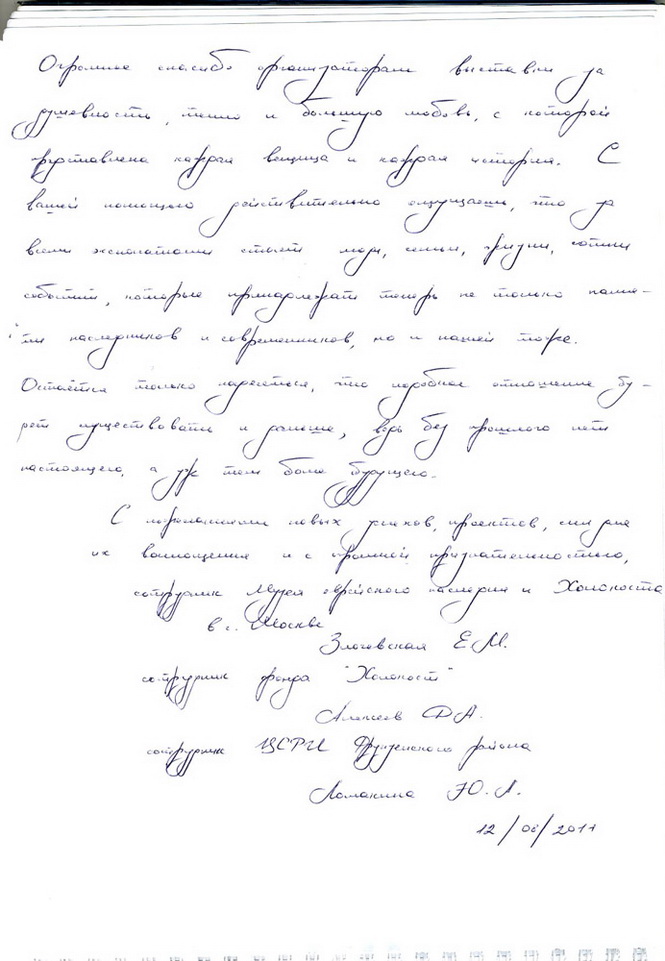 Огромное спасибо организаторам выставки за
душевность, тепло и большую любовь, с которой
представлена каждая вещица и каждая история. С
вашей помощью действительно ощущаешь, что за
всеми экспонатами стоят люди, семьи, жизни, сотни
событий, которые принадлежат теперь не только памя-
ти наследников и современников, но и нашей тоже.
Остаётся только надеяться, что подобное отношение бу-
дет существовать и дальше, ведь без прошлого нет
настоящего, а уж тем более будущего.
С пожеланиями новых успехов, проектов, сил для
их воплощения и с огромной признательностью,
сотрудник Музея еврейского наследия и Холокоста
в г. Москве
Злочевская Е.М.
сотрудник фонда "Холокост"
Алексеев Д.А.
сотрудник ЦСРИ Фрунзенского района
Ломакина Ю.А.
2011